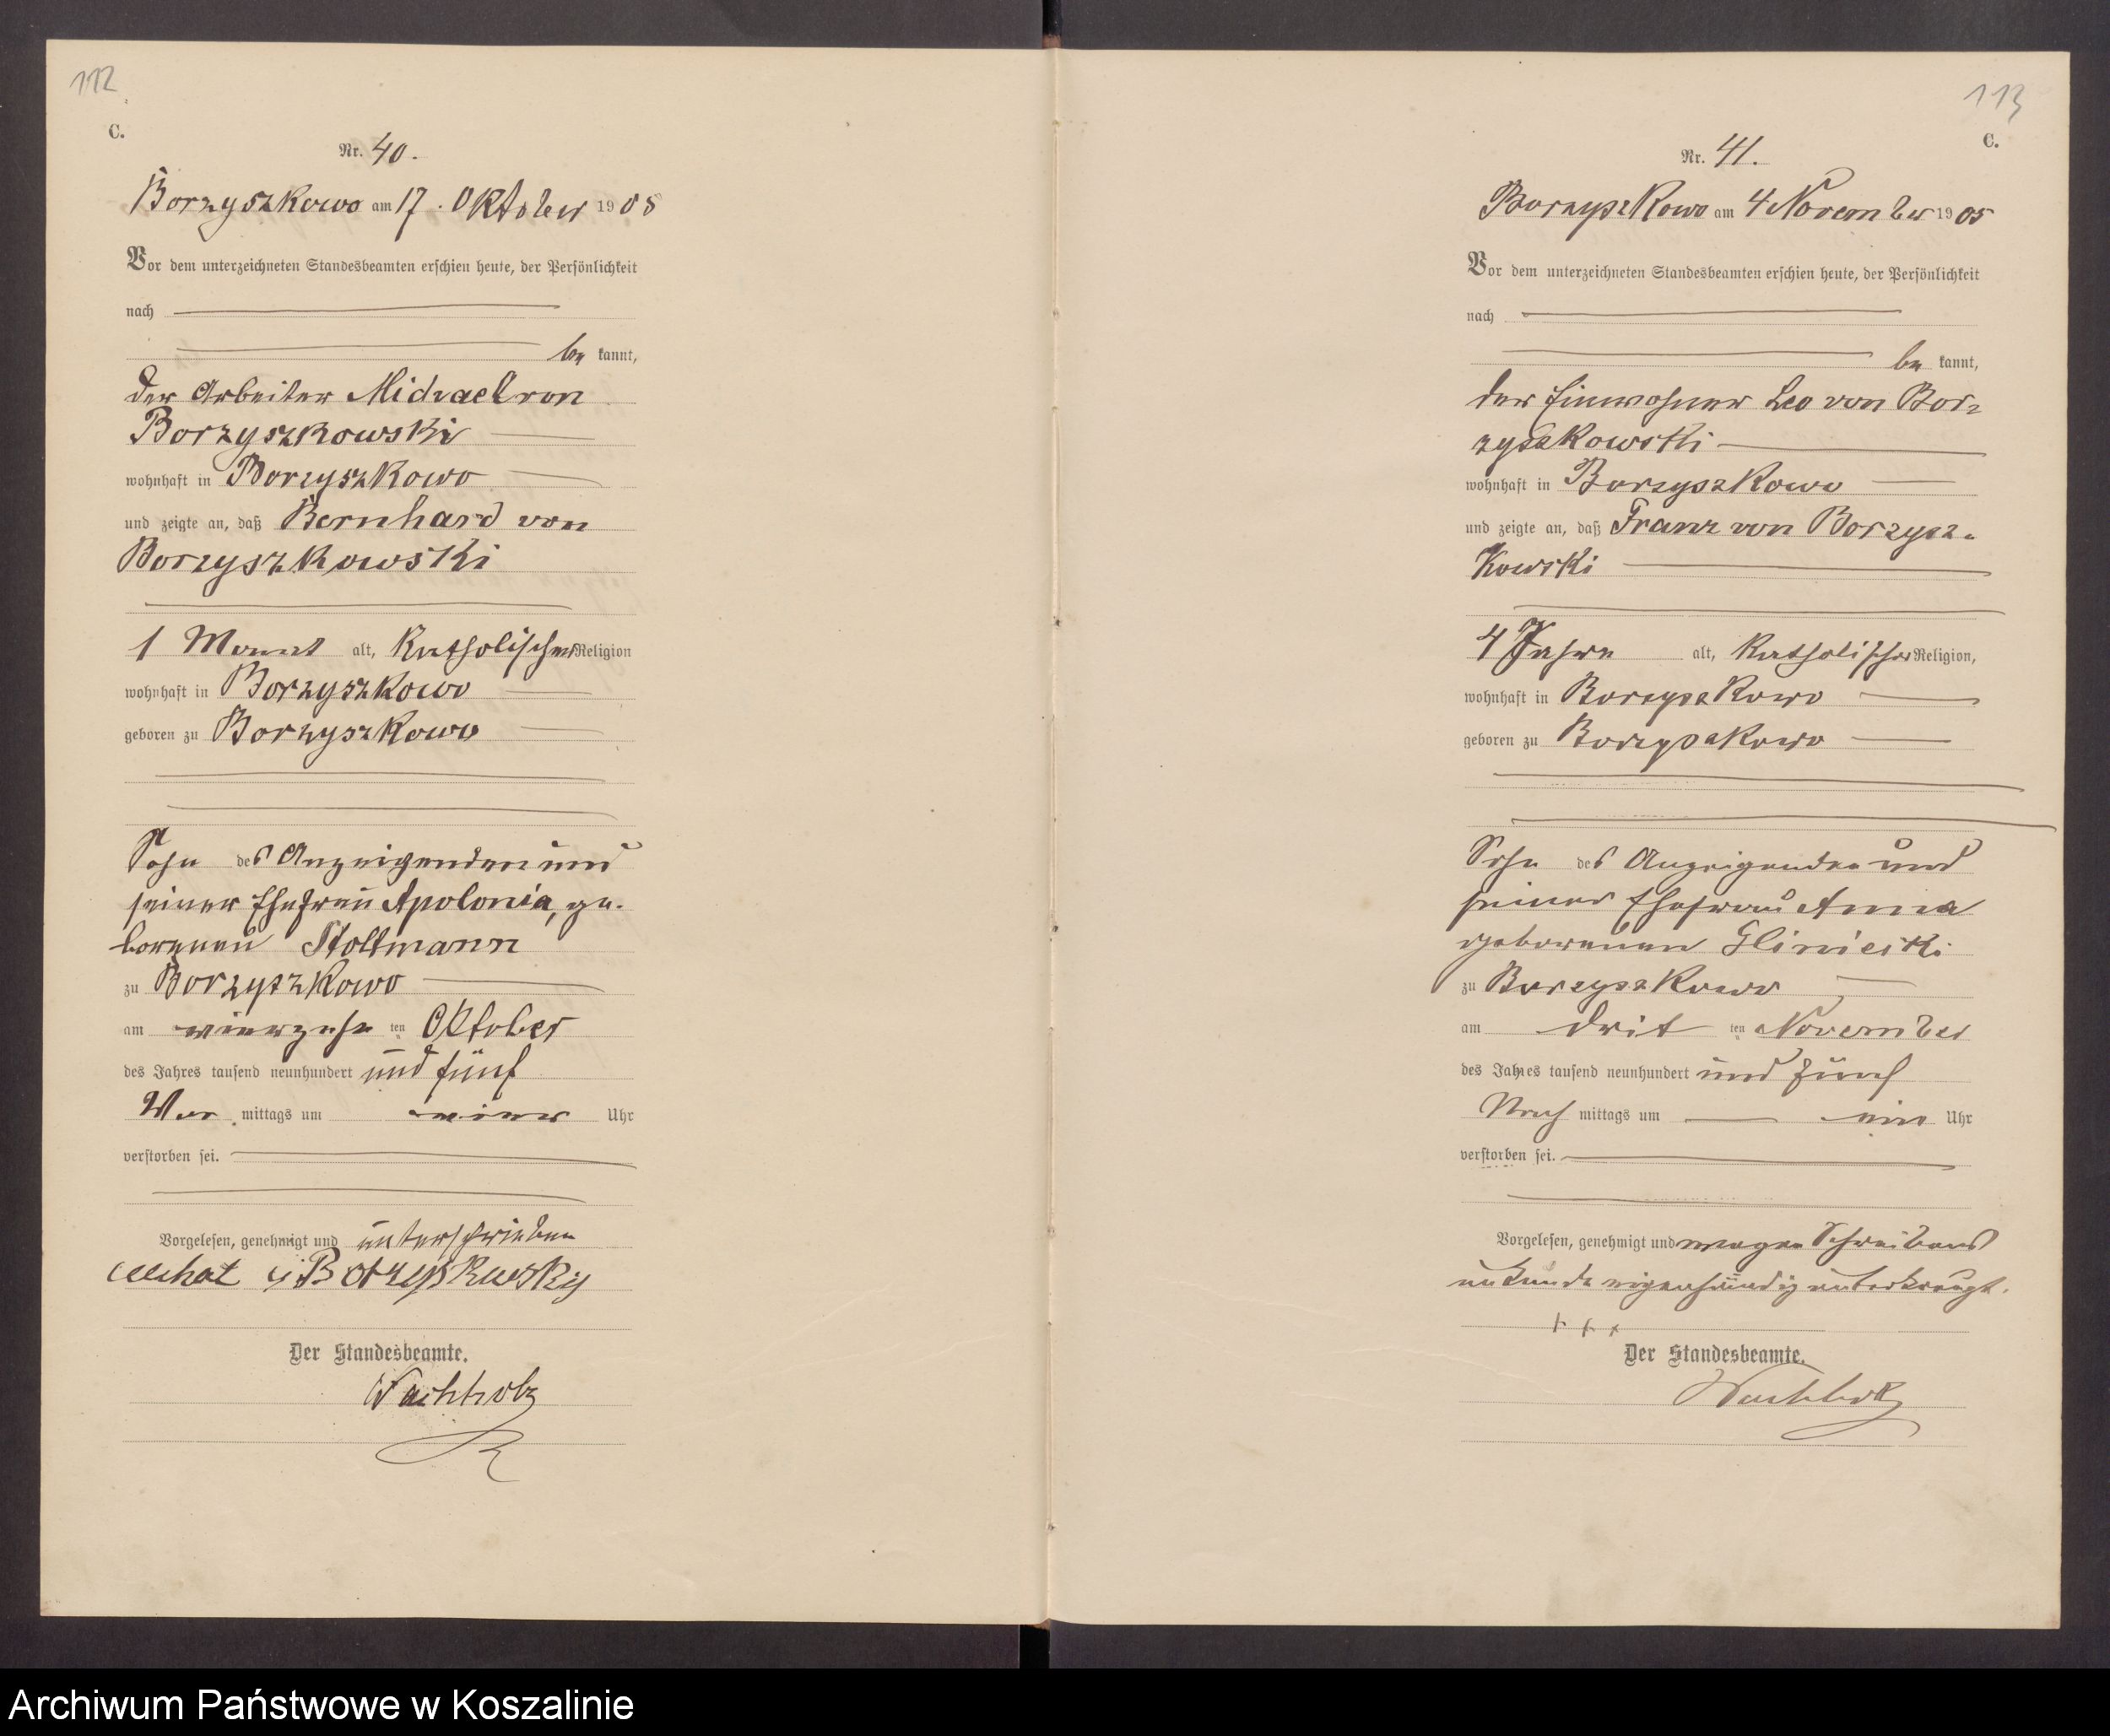 112
C.
Nr. 40.
Borzyszkowo am 17. Oktober 1905
Vor dem unterzeichneten Standesbeamten erschien heute, der Persönlichkeit
nach
be kannt,
der Arbeiter Michael von
Borzyszkowski
wohnhaft in Borzyszkowo
und zeigte an, daß Bernhard von
Borzyszkowski
1 Monat alt, katholischer Religion
wohnhaft in Borzyszkowo
geboren zu Borzyszkowo
Sohn des Anzeigenden und
seiner Ehefrau Apolonia, ge-
borenen Stoltmann
zu Borzyszkowo
am vierzehn ten Oktober
des Jahres tausend neunhundert und fünf
Vor mittags um Uhr
verstorben sei.
Vorgelesen, genehmigt und unterschrieben
Der Standesbeamte.
Wachholz
113
C.
Nr. 41.
Borzyszkowo am 4 November 1905
Vor dem unterzeichneten Standesbeamten erschien heute, der Persönlichkeit
nach
be kannt,
der Einwohner Leo von Bor-
zyszkowski
wohnhaft in Borzyszkowo
und zeigte an, daß Franz von Borzysz-
kowski
4 Jahre alt, katholischer Religion,
wohnhaft in Borzyszkowo
geboren zu Borzyszkowo
Sohn des Anzeigenden und
seiner Ehefrau Anna
geborenen Glinieski
zu Borzyszkowo
am drit ten November
des Jahres tausend neunhundert und fünf
Nach mittags um ein Uhr
verstorben sei.
Vorgelesen, genehmigt und wegen Schreibens
unkunde eigenhändig unterkreuzt.
+ + +
Der Standesbeamte.
Wachholz
Archiwum Państwowe w Koszalinie